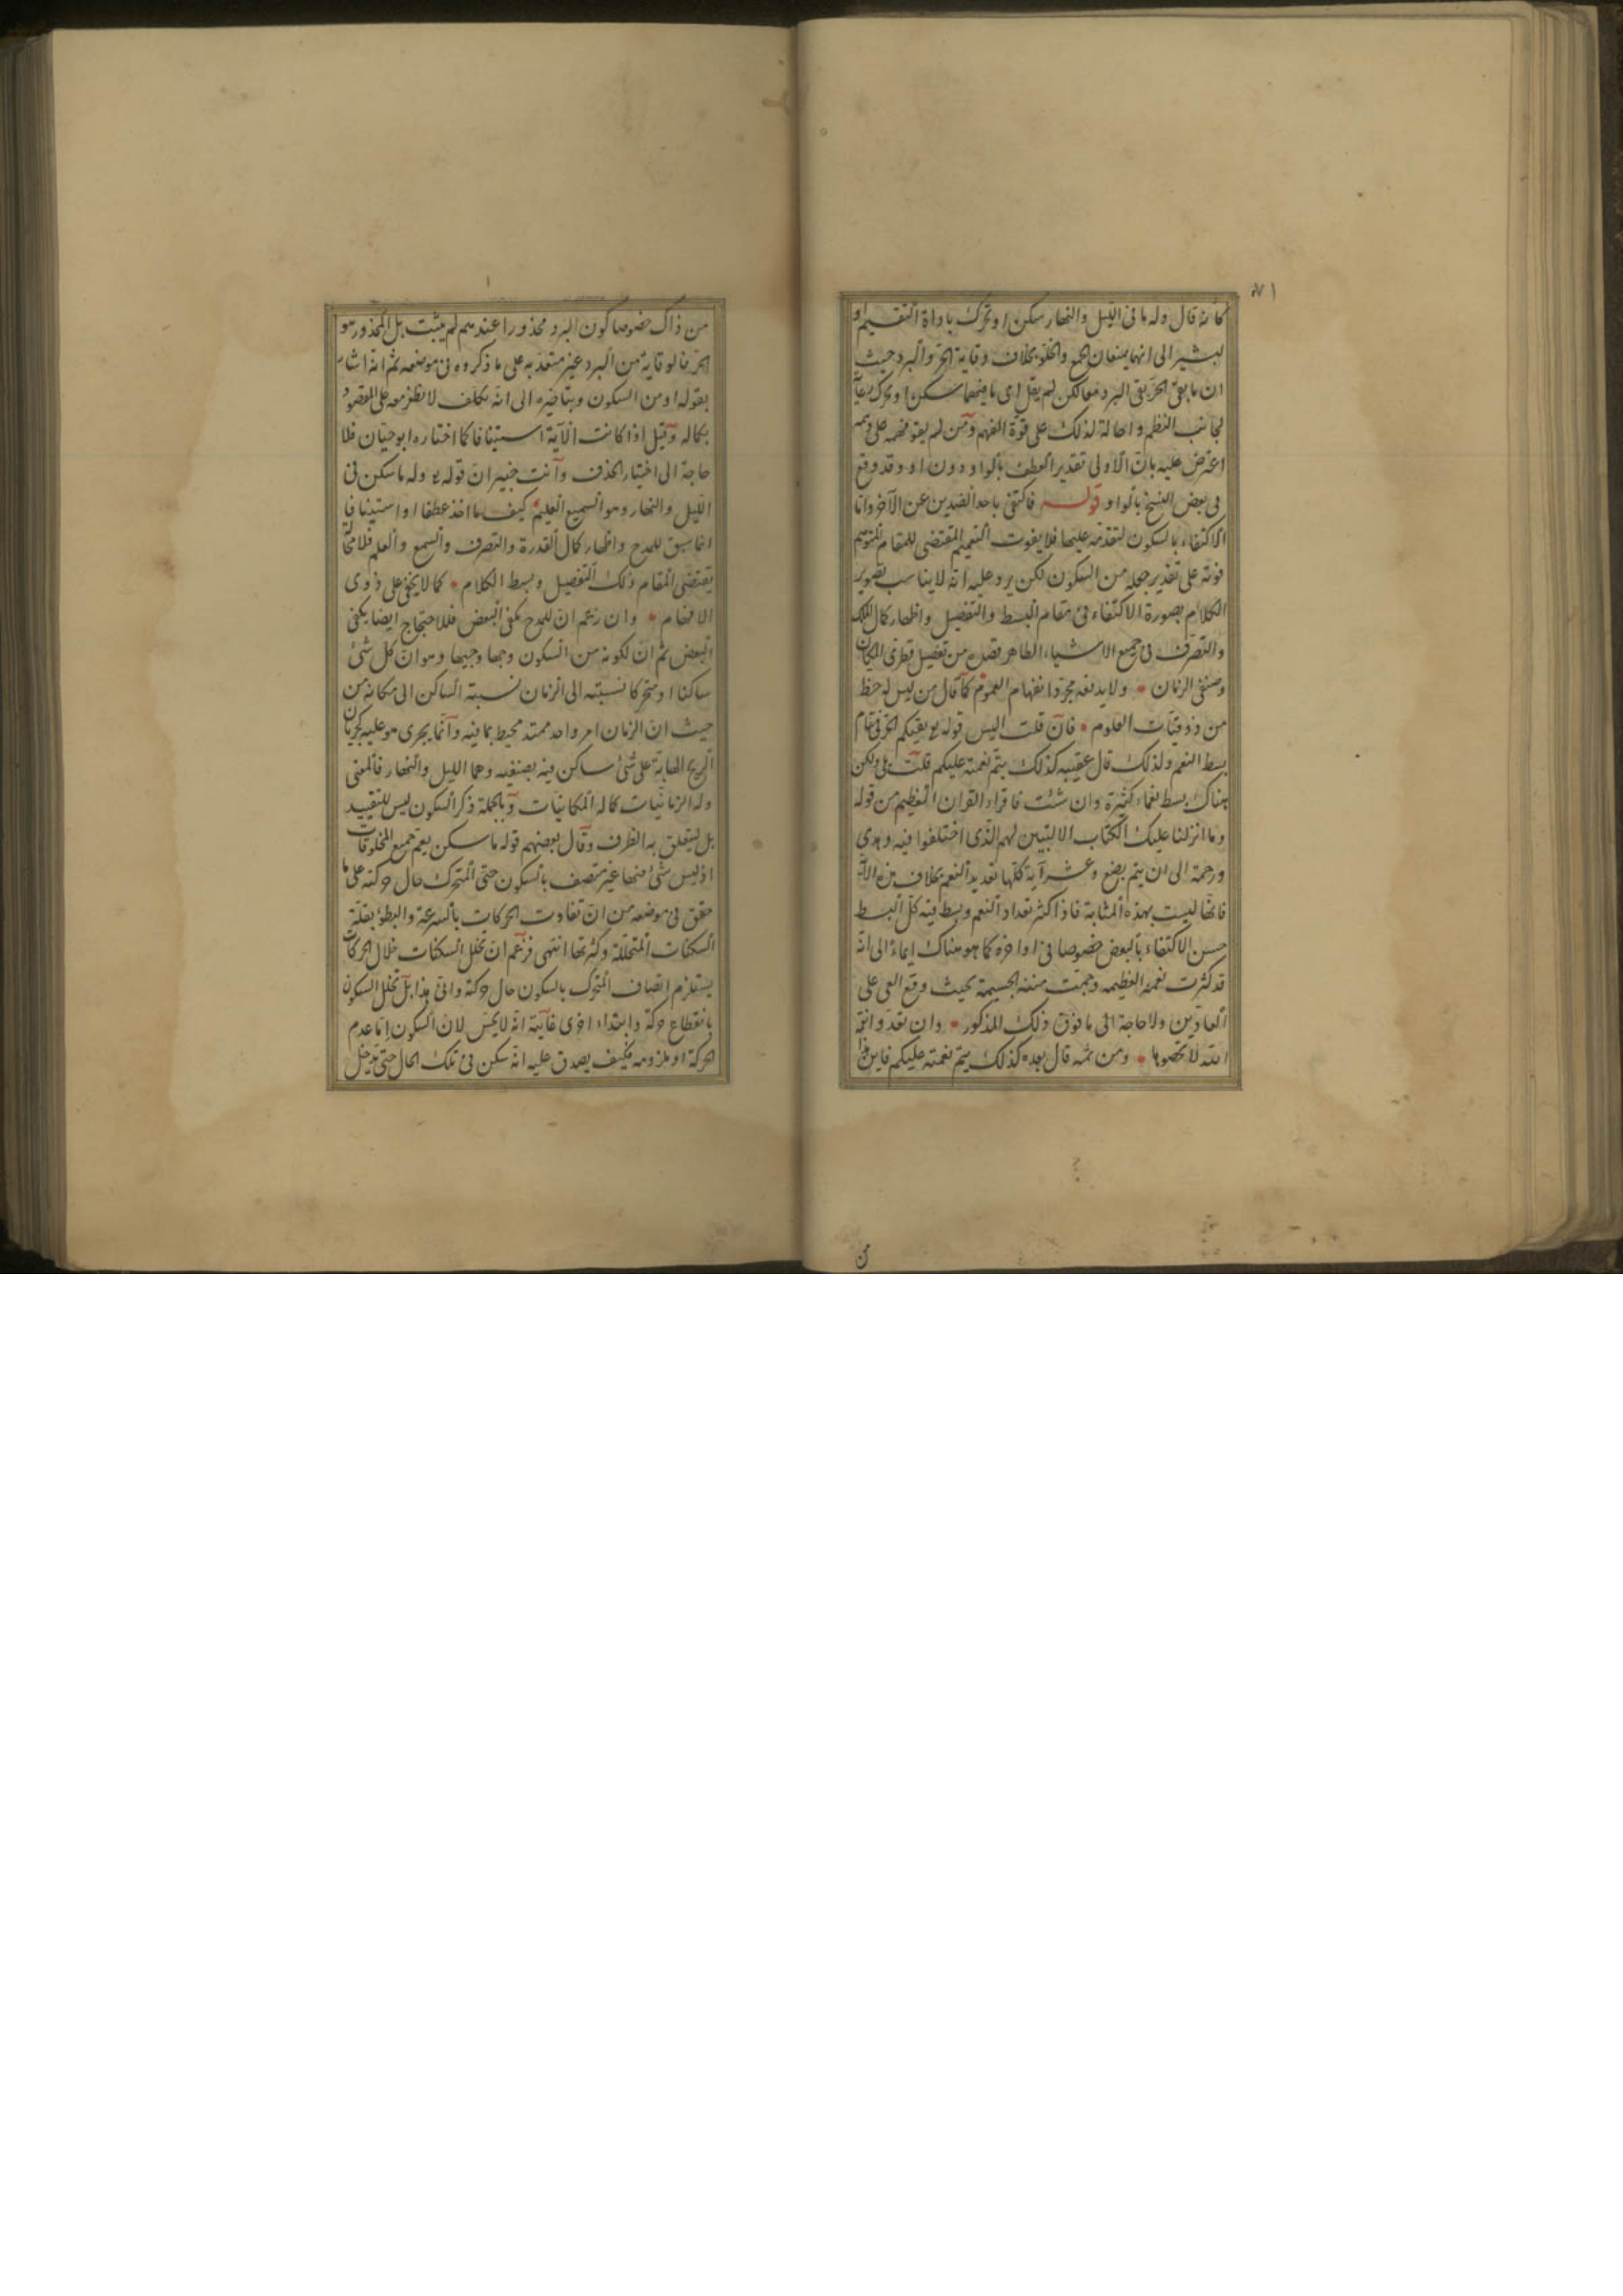 ٧١
كأنه قال وله ما في الليل والنهار سكن او تحرك باداة التقسيم او
ليشير الى انهما يمنعان الجمع والخلو بخلاف وقاية الحر والبرد حيث
ان ما يقي الحر يقي البرد معا لكن لم يقل اى ما فيهما سكن او تحرك رعاية
لجانب النظم واحالة لذلك على قوة الفهم ومن لم يقو فهمه على وهمه
اعترض عليه بان الاولى تقدير العطف بالواو دون او وقد وقع
في بعض النسخ بالواو قوله فاكتفى باحد الضدين عن الآخر وانما
الاكتفاء بالسكون لتقدمه عليها فلا يفوت التعميم المقتضى للمقام المتوهم
فوته على تقدير جعله من السكون لكن يرد عليه انه لا يناسب تصوير
الكلام بصورة الاكتفاء في مقام البسط والتفصيل واظهار كمال الملك
والتصرف في جميع الاشياء الظاهر فضله من تفصيل قطرى المكان
وصنفي الزمان ولا يدفعه مجرد انفهام العموم كما قال من ليس له حظ
من ذوقيات العلوم فان قلت اليس قوله تع يقيكم الحر في مقام
بسط النعم ولذلك قال عقيبه كذلك يتم نعمته عليكم قلت بلى ولكن
هناك بسط نعماء كثيرة وان شئت فاقراء القران العظيم من قوله
وما انزلنا عليك الكتاب الا لتبين لهم الذى اختلفوا فيه وهدى
ورحمة الى ان يتم بضع وعشر آية كلها تعديد النعم بخلاف هذه الآية
فانها ليست بهذه المثابة فاذا كثر تعداد النعم وبسط فيه كل البسط
حسن الاكتفاء بالبعض خصوصا في اواخره كما هو هناك ايماء الى انه
قد كثرت نعمه العظيمة وجمت مننه الجسيمة بحيث وقع العى على
العادين ولا حاجة الى ما فوق ذلك المذكور وان تعدوا نعمة
الله لا تحصوها ومن ثمه قال بعده كذلك يتم نعمته عليكم فاين هذا
من
من ذاك خصوصا كون البرد محذورا عندهم لم يثبت بل المحذور هو
الحر فالوقاية من البرد غير معتد به على ما ذكروه في موضعه ثم انه اشار
بقوله او من السكون وبتاخيره الى انه تكلف لا يظفر معه على المقصود
بكماله وقيل اذا كانت الآية استينافا كما اختاره ابو حيان فلا
حاجة الى اختيار الحذف وانت خبير ان قوله تع وله ما سكن في
الليل والنهار وهو السميع العليم كيف ما اخذ عطفا او استينافا
انما سيق للمدح واظهار كمال القدرة والتصرف والسمع والعلم فلا محالة
يقتضى المقام ذلك التفصيل وبسط الكلام كما لا يخفى على ذوى
الافهام وان زعم ان للمدح يكفي البعض فللاحتجاج ايضا يكفي
البعض ثم ان لكونه من السكون وجها وجيها وهو ان كل شئ
ساكنا او متحركا نسبته الى الزمان نسبة الساكن الى مكانه من
حيث ان الزمان امر واحد ممتد محيط بما فيه وانما يجرى هو عليه كجريان
الريح الهابة على شئ ساكن فيه بصنفيه وهما الليل والنهار فالمعنى
وله الزمانيات كما له المكانيات وبالجملة ذكر السكون ليس للتقييد
بل ليتعلق به الظرف وقال بعضهم قوله ما سكن يعم جميع المخلوقات
اذ ليس شئ منها غير متصف بالسكون حتى المتحرك حال حركته على ما
حقق في موضعه من ان تفاوت الحركات بالسرعة والبطؤ بقلة
السكنات المتخللة وكثرتها انتهى فزعم ان تخلل السكنات خلال الحركات
يستلزم اتصاف المتحرك بالسكون حال حركته وانى هذا بل تخلل السكون
بانقطاع حركة وابتداء اخرى غايته انه لا يحس لان السكون اما عدم
الحركة او ملزومه فكيف يصدق عليه انه سكن في تلك الحال حتى يدخل